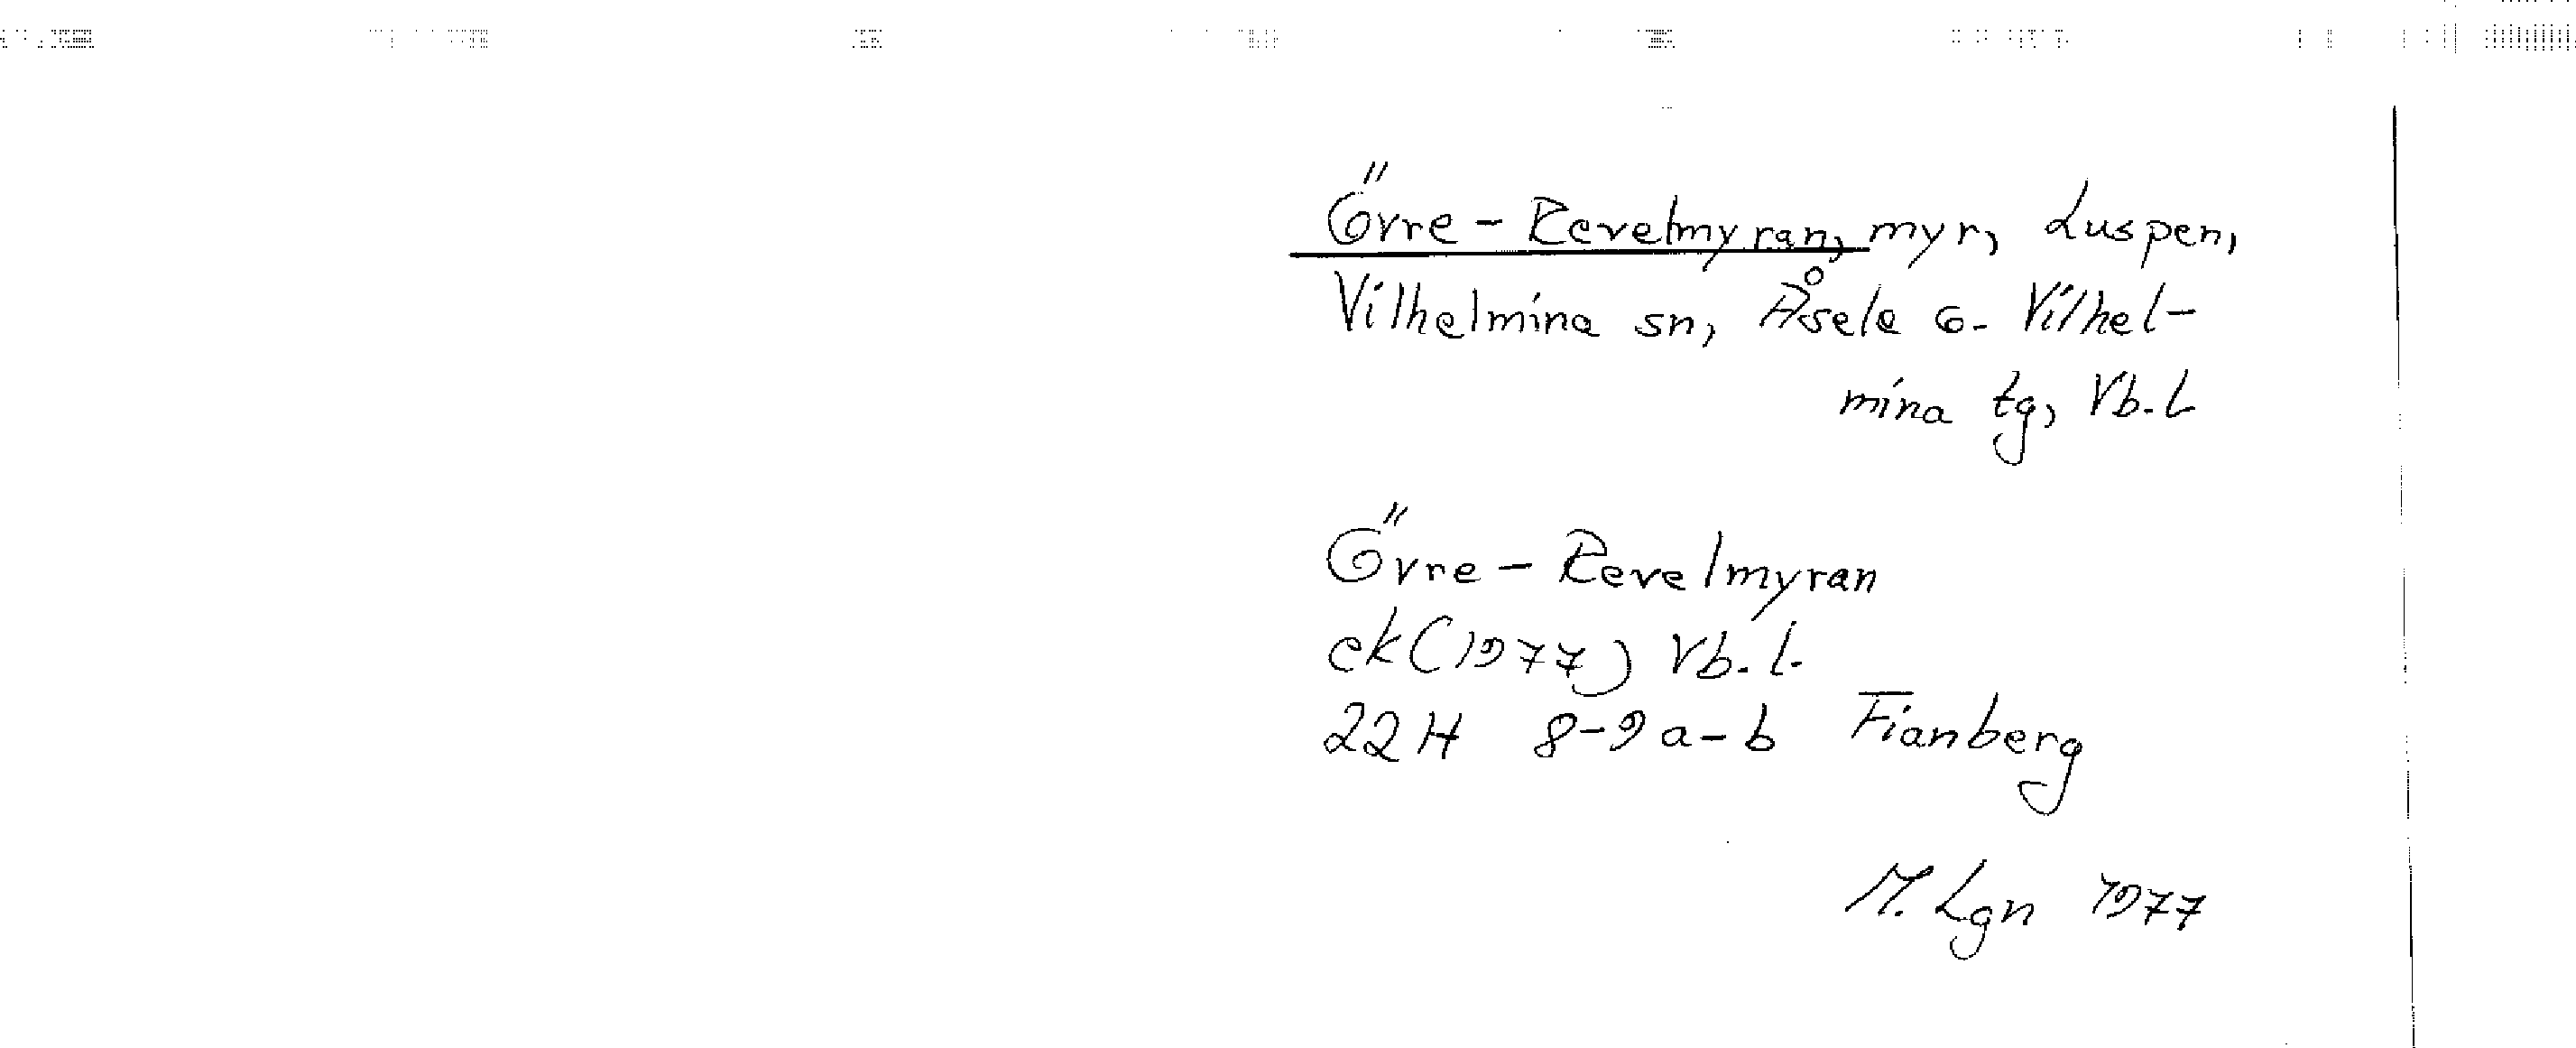 Övre-Revelmyran, myr, Luspen,
Vilhelmina sn, Åsele o. Vilhel-
mina tg, Vb.L
Övre-Revelmyran
ek(1977) Vb.l.
22H 8-9a-b Fianberg
M. Lgn 1977